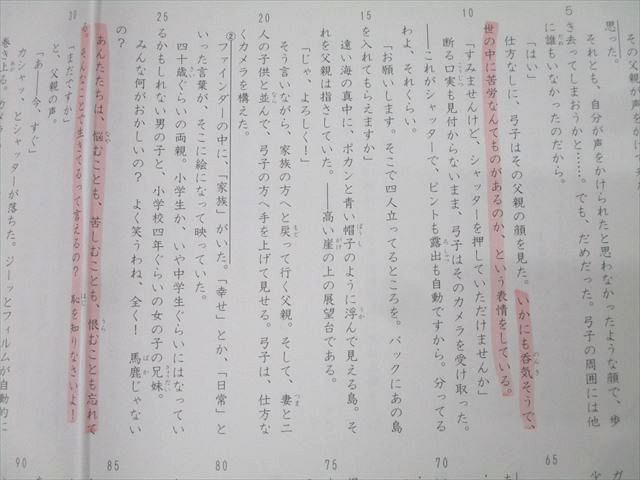 その父親が
思った。
それとも、自分が声をかけられたと思わなかったような顔で、歩
5
き去ってしまおうかと……。でも、だめだった。弓子の周囲には他
に誰もいなかったのだから。
「はい」
仕方なしに、弓子はその父親の顔を見た。いかにも呑気そうで、
世の中に苦労なんてものがあるのか、という表情をしている。
10
「すみませんけど、シャッターを押していただけませんか」
断る口実も見付からないまま、弓子はそのカメラを受け取った。
――これがシャッターで、ピントも露出も自動ですから。分ってる
わよ、それくらい。
「お願いします。そこで四人立ってるところを。バックにあの島
15
を入れてもらえますか」
遠い海の真中に、ポカンと青い帽子のように浮んで見える島。そ
れを父親は指さしていた。――高い崖の上の展望台である。
「じゃ、よろしく！」
そう言いながら、家族の方へと戻って行く父親。そして、妻と二
20
人の子供と並んで、弓子の方へ手を上げて見せる。弓子は、仕方な
くカメラを構えた。
②ファインダーの中に、「家族」がいた。「幸せ」とか、「日常」と
いった言葉が、そこに絵になって映っていた。
四十歳ぐらいの両親。小学生か、いや中学生ぐらいにはなってい
25
るかもしれない男の子と、小学校四年ぐらいの女の子の兄妹。
みんな何がおかしいの？　よく笑うわね、全く！　馬鹿じゃない
の？
あんたたちは、悩むことも、苦しむことも、恨むことも忘れて
る。そんなことで生きてるって言えるの？　恥を知りなさいよ！
30
「まだですか」
と、父親の声。
「あ――今、すぐ」
カシャッ、とシャッターが落ちた。ジーッとフィルムが自動的に
巻き上る。
65
70
75
80
85
90